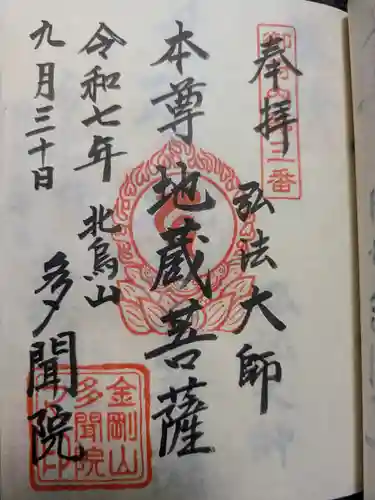 奉拝
弘法大師
本尊地蔵菩薩
令和七年
九月三十日
北烏山
多聞院
金剛山
多聞院